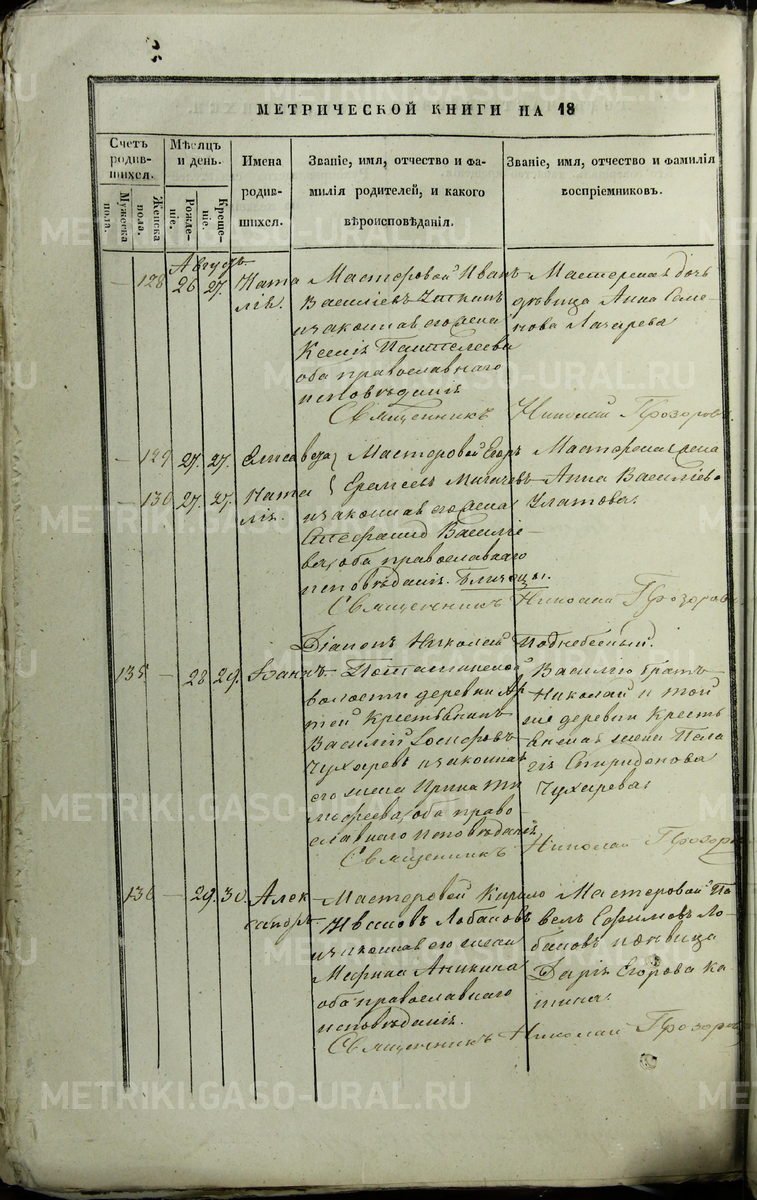 МЕТРИЧЕСКОЙ КНИГИ НА 18
Счетъ родив-шихся.
Мужеска пола.
Женска пола.
Мѣсяцъ и день.
Рожде-ніе.
Креще-ніе.
Имена родив-шихся.
Званіе, имя, отчество и фа-
милія родителей, и какого
вѣроисповѣданія.
Званіе, имя, отчество и фамилія
воспріемниковъ.
Августъ
128 26 27. Ната
лія.
Мастеровой Иванъ
Василіевъ
и законная его жена
Ксенія Пантелеева
оба православнаго
исповѣданія
Мастерская дочь
дѣвица Анна Семе-
нова Лазарева
Священникъ Николай Прозоровъ
129 27. 27. Елисавета
130 27. 27. Ната
лія.
Мастеровой Егоръ
Еремеевъ
и законная его жена
Стефанида Василіе-
ва, оба православнаго
исповѣданія. Близнецы.
Мастерская жена
Анна Василіева
Священникъ Николай Прозоровъ
Діаконъ Николай Поднебесный.
135 28 29. Іоаннъ
волости деревни Ар
тей крестьянинъ
Василій
Чухаревъ и законная
его жена Ирина Ти
мофеева, оба право
славнаго исповѣданія
Василію братъ
Николай и той
же деревни Кресть
янская жена Пела
гія Спиридонова
Чухарева
Священникъ Николай Прозоровъ
136 29. 30. Алек
сандръ
Мастеровой Кирило
Ивановъ Лобановъ
и законная его жена
Марина Аникина
оба православнаго
исповѣданія.
Мастеровой Па
велъ Ефимовъ Ло-
бановъ и дѣвица
Дарія Егорова Ка
тина.
Священникъ Николай Прозоровъ
METRIKI.GASO-URAL.RU